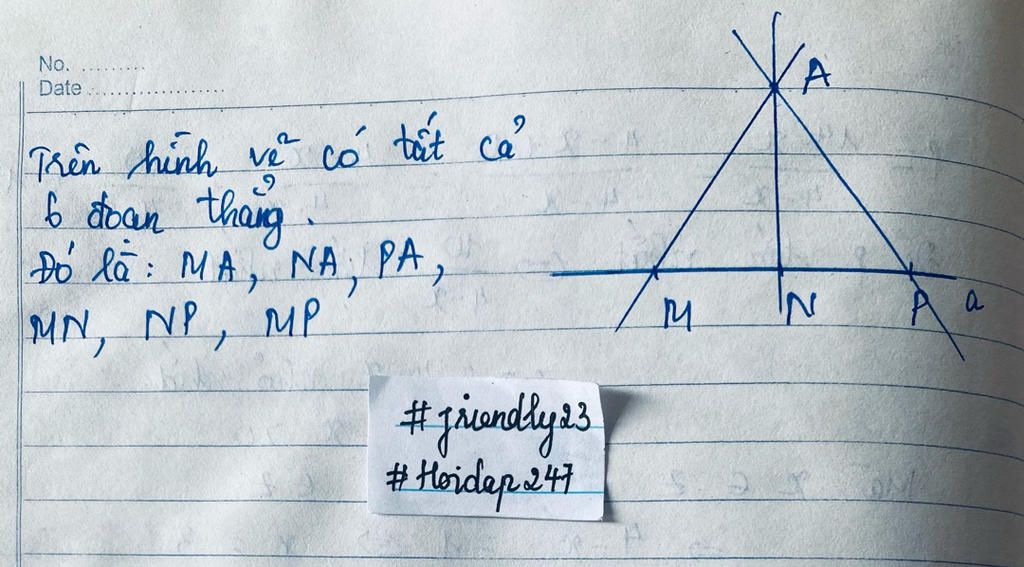 No. .........
Date ...................
Trên hình vẽ có tất cả
6 đoạn thẳng.
Đó là: MA, NA, PA,
MN, NP, MP
A
M N P a
#friendly23
#Hoidap247